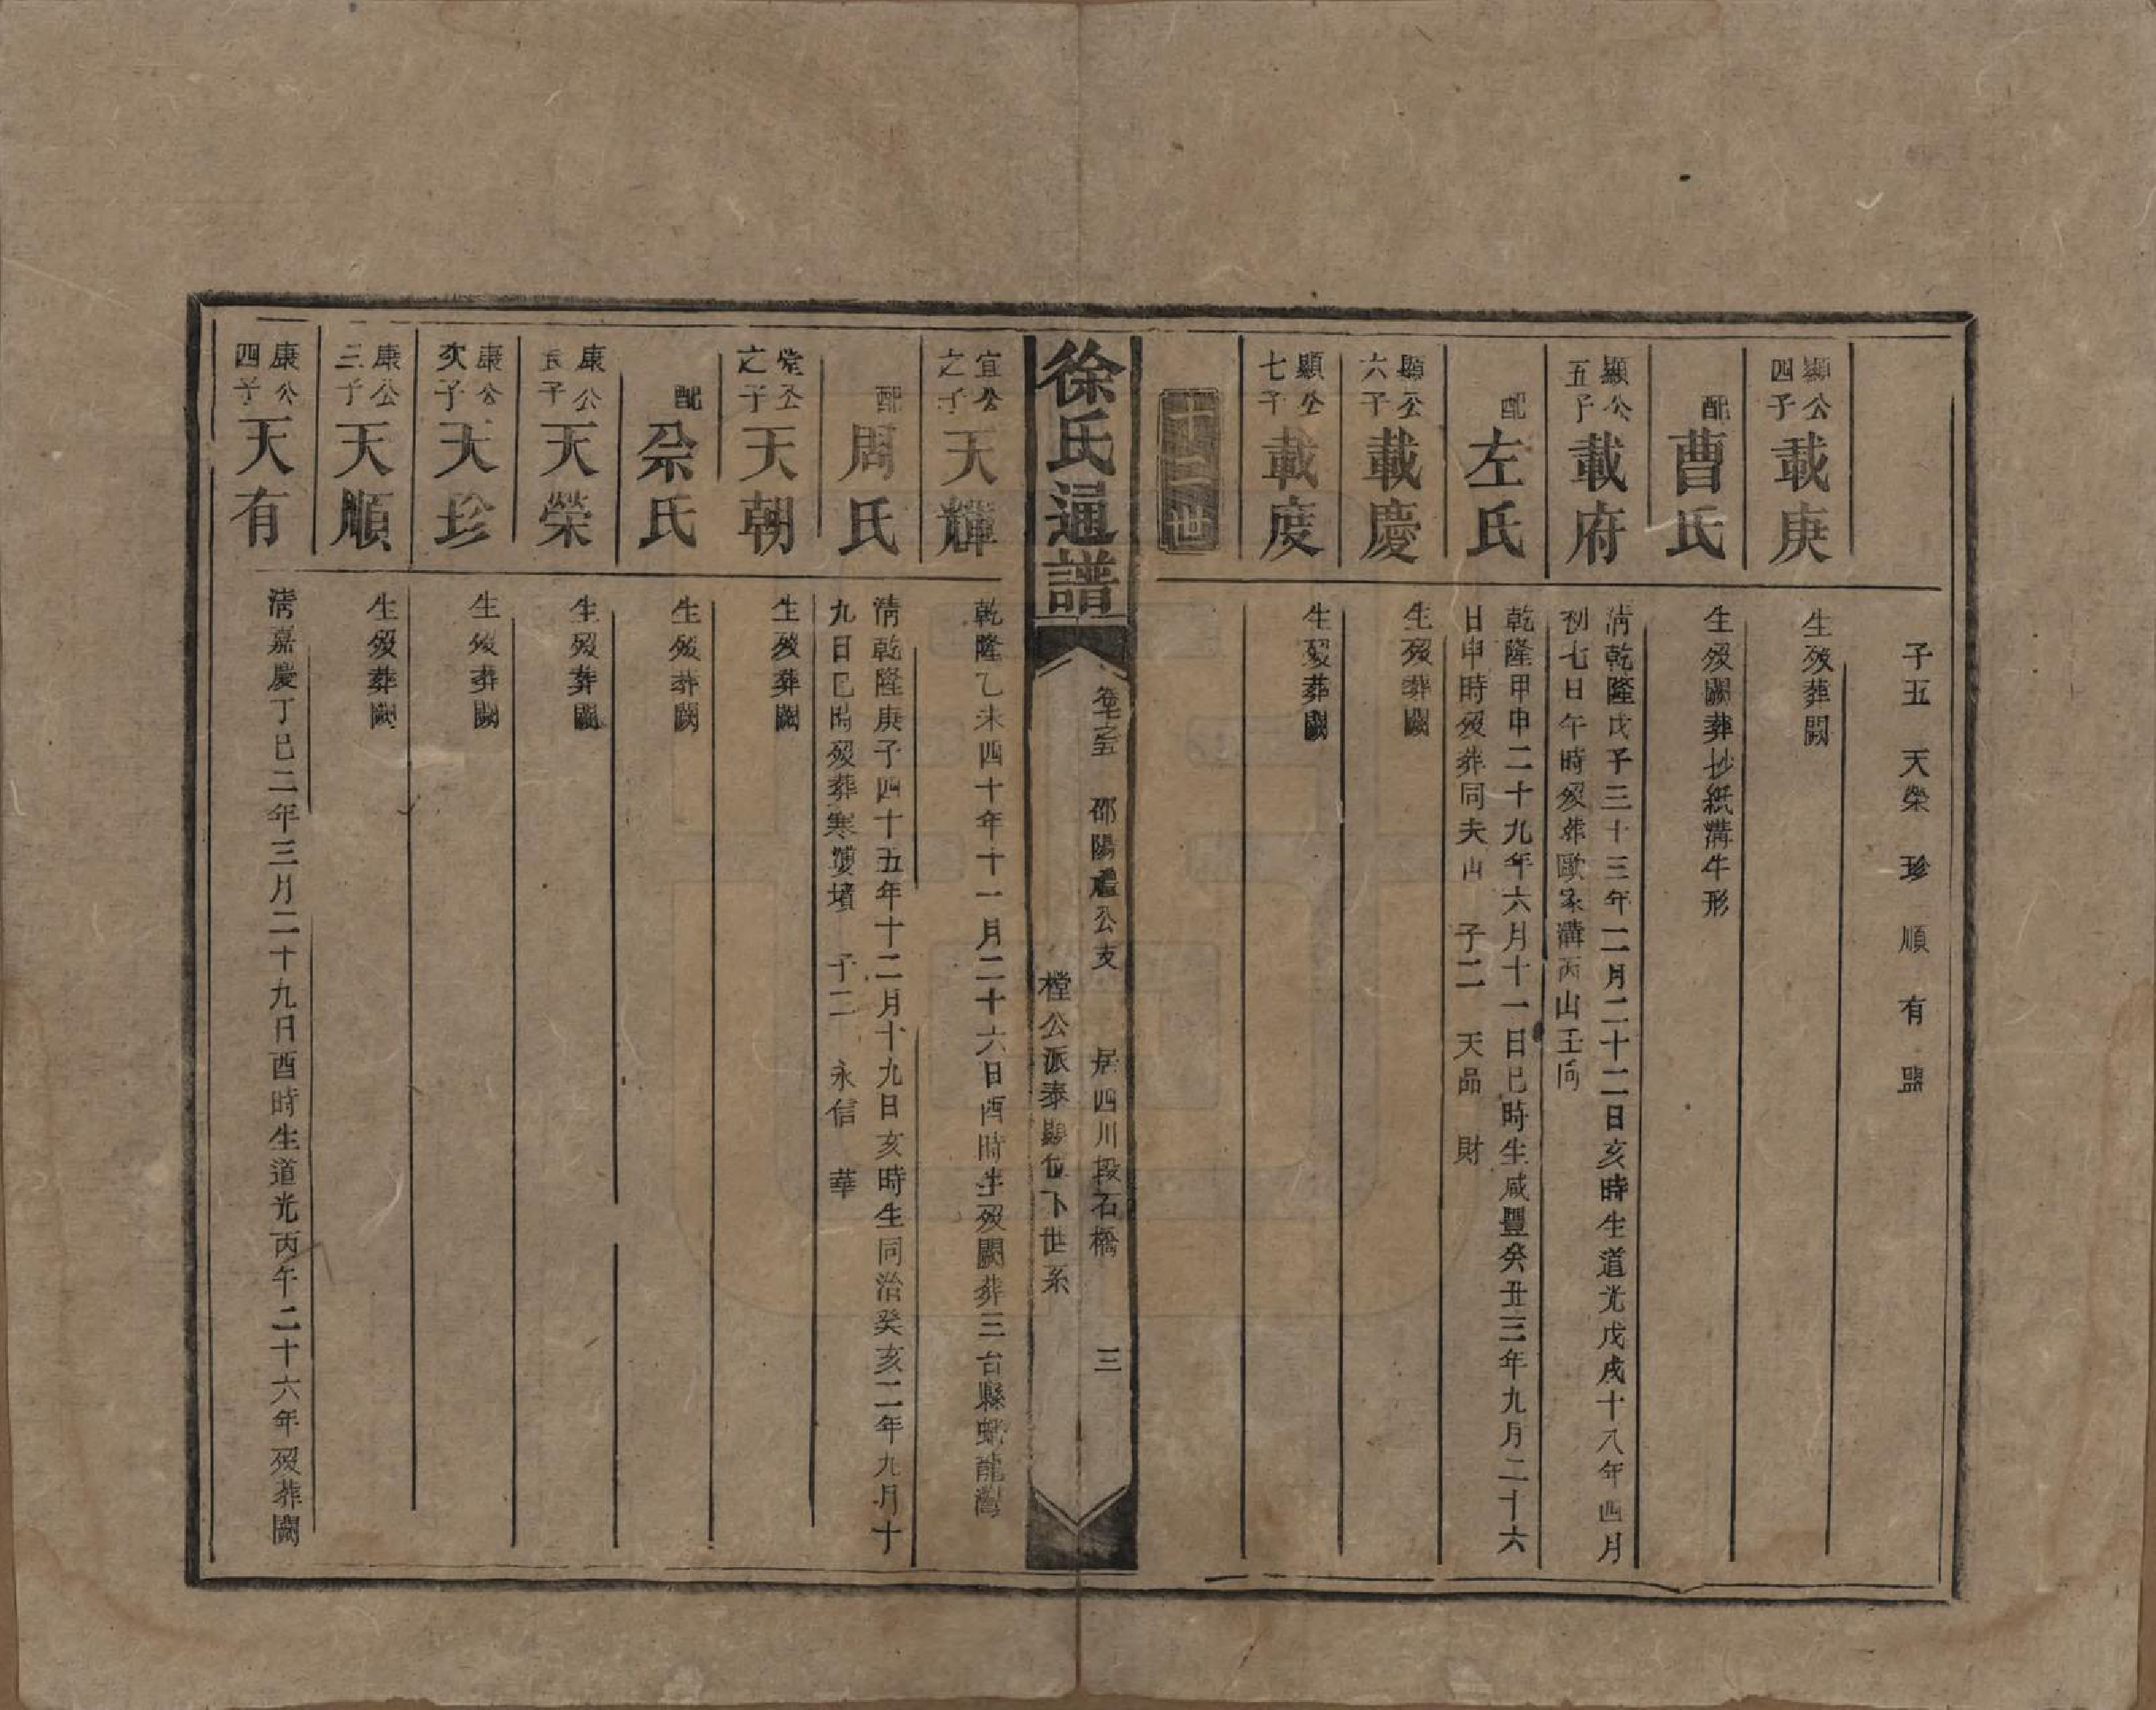 子五　天榮　珍　順　有　盟
顯公四子　載庚　生歿葬闕
配　曹氏　生歿闕葬抄紙溝牛形
顯公五子　載府　清乾隆戊子三十三年二月二十二日亥時生道光戊戌十八年四月
初七日午時歿葬歐家溝丙山壬向
配　左氏　乾隆甲申二十九年六月十一日巳時生咸豐癸丑三年九月二十六
日申時歿葬同夫山　子二　天品　財
顯公六子　載慶　生歿葬闕
顯公七子　載度　生歿葬闕
十二世
徐氏通譜　卷七之五　邵陽公支　居四川段石橋　三
樘公派泰顯位下世系
宜公之子　天輝　乾隆乙未四十年十一月二十六日酉時生歿闕葬三台縣龍灣
配　周氏　清乾隆庚子四十五年十二月十九日亥時生同治癸亥二年九月十
九日巳時歿葬寒婆墳　子二　永信　華
堂公之子　天朝　生歿葬闕
配　氏　生歿葬闕
康公長子　天榮　生歿葬闕
康公次子　天珍　生歿葬闕
康公三子　天順　生歿葬闕
康公四子　天有　清嘉慶丁巳二年三月二十九日酉時生道光丙午二十六年歿葬闕